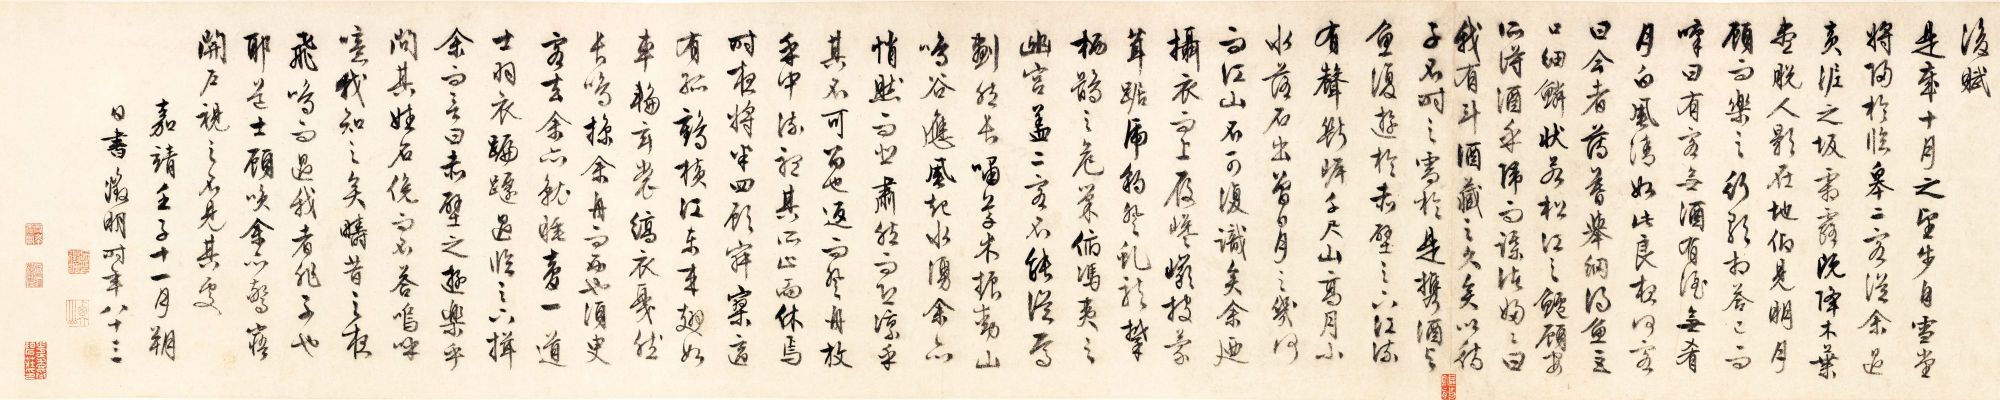 後賦
是歲十月之望步自雪堂
將歸於臨皋二客從余過
黃泥之坂霜露既降木葉
盡脫人影在地仰見明月
顧而樂之行歌相答已而
嘆曰有客無酒有酒無肴
月白風清如此良夜何客
曰今者薄暮舉網得魚巨
口細鱗狀若松江之鱸顧安
所得酒乎歸而謀諸婦婦曰
我有斗酒藏之久矣以待
子不時之需於是攜酒與
魚復遊於赤壁之下江流
有聲斷岸千尺山高月小
水落石出曾日月之幾何
而江山不可復識矣余廼
攝衣而上履巉巖披蒙
茸踞虎豹登虬龍攀
栖鶻之危巢俯馮夷之
幽宮蓋二客不能從焉
劃然長嘯草木振動山
鳴谷應風起水湧余亦
悄然而悲肅然而恐凜乎
其不可留也返而登舟放
乎中流聽其所止而休焉
時夜將半四顧寂寥適
有孤鶴橫江東來翅如
車輪玄裳縞衣戛然
長鳴掠余舟而西也須臾
客去余亦就睡夢一道
士羽衣蹁躚過臨之下揖
余而言曰赤壁之遊樂乎
問其姓名俛而不答嗚呼
噫我知之矣疇昔之夜
飛鳴而過我者非子也
耶道士顧笑余亦驚寤
開戶視之不見其處
嘉靖壬子十一月朔
日書徵明時年八十三